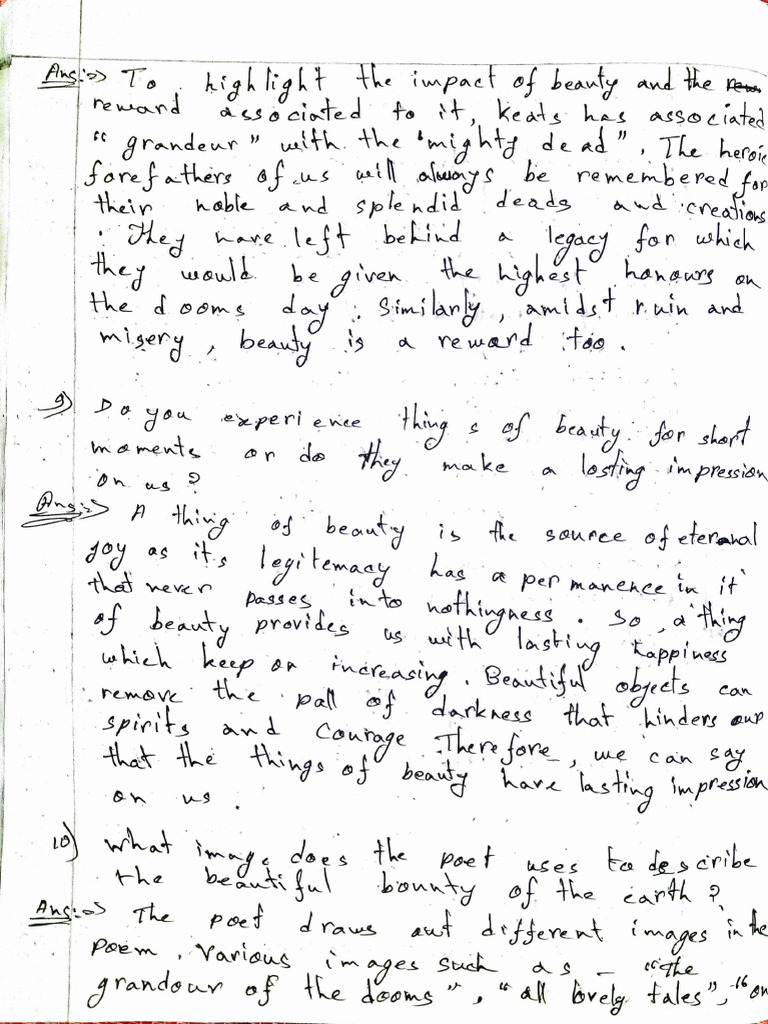 Ans:=> To highlight the impact of beauty and the
reward associated to it, Keats has associated
"grandeur" with the "mighty dead". The heroic
forefathers of us will always be remembered for
their noble and splendid deads and creations
. They have left behind a legacy for which
they would be given the highest honours on
the dooms day. Similarly, amidst ruin and
misery, beauty is a reward too.
9) Do you experience things of beauty for short
moments or do they make a lasting impression
on us?
Ans:=> A thing of beauty is the source of eternal
joy as its legitemacy has a permanence in it
that never passes into nothingness. So, a thing
of beauty provides us with lasting happiness
which keep on increasing. Beautiful objects can
remove the pall of darkness that hinders our
spirits and courage. Therefore, we can say
that the things of beauty have lasting impression
on us.
10) What image does the poet uses to describe
the beautiful bounty of the earth?
Ans:=> The poet draws out different images in the
poem. Various images such as - "the
grandour of the dooms", "all lovely tales", "on